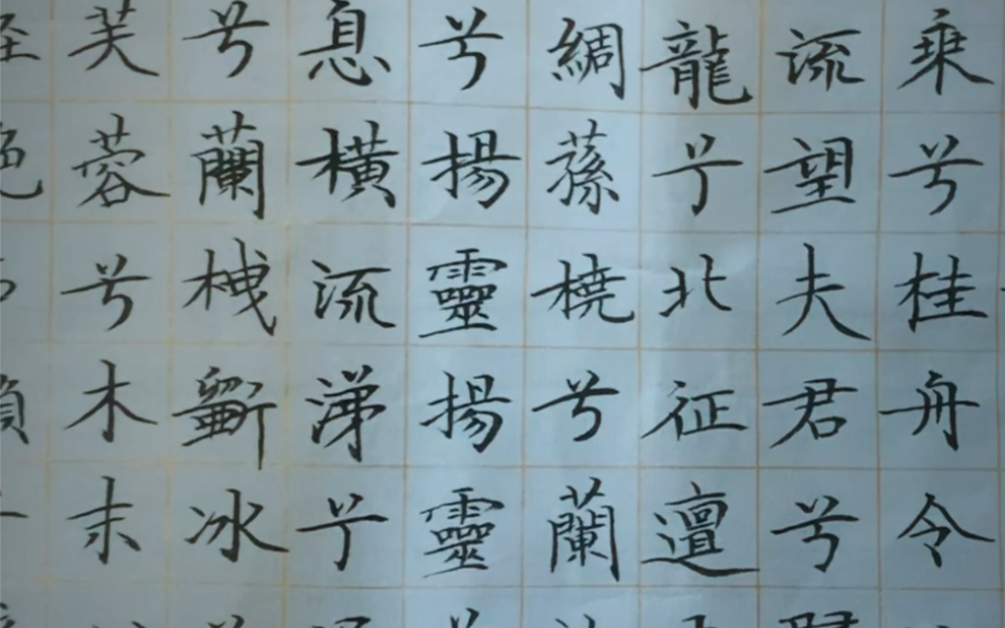 乗兮桂舟令
流望夫君兮
龍兮北征邅
綢蓀橈兮蘭
兮揚靈揚靈
息橫流涕兮
兮蘭栧斲冰
芙蓉兮木末